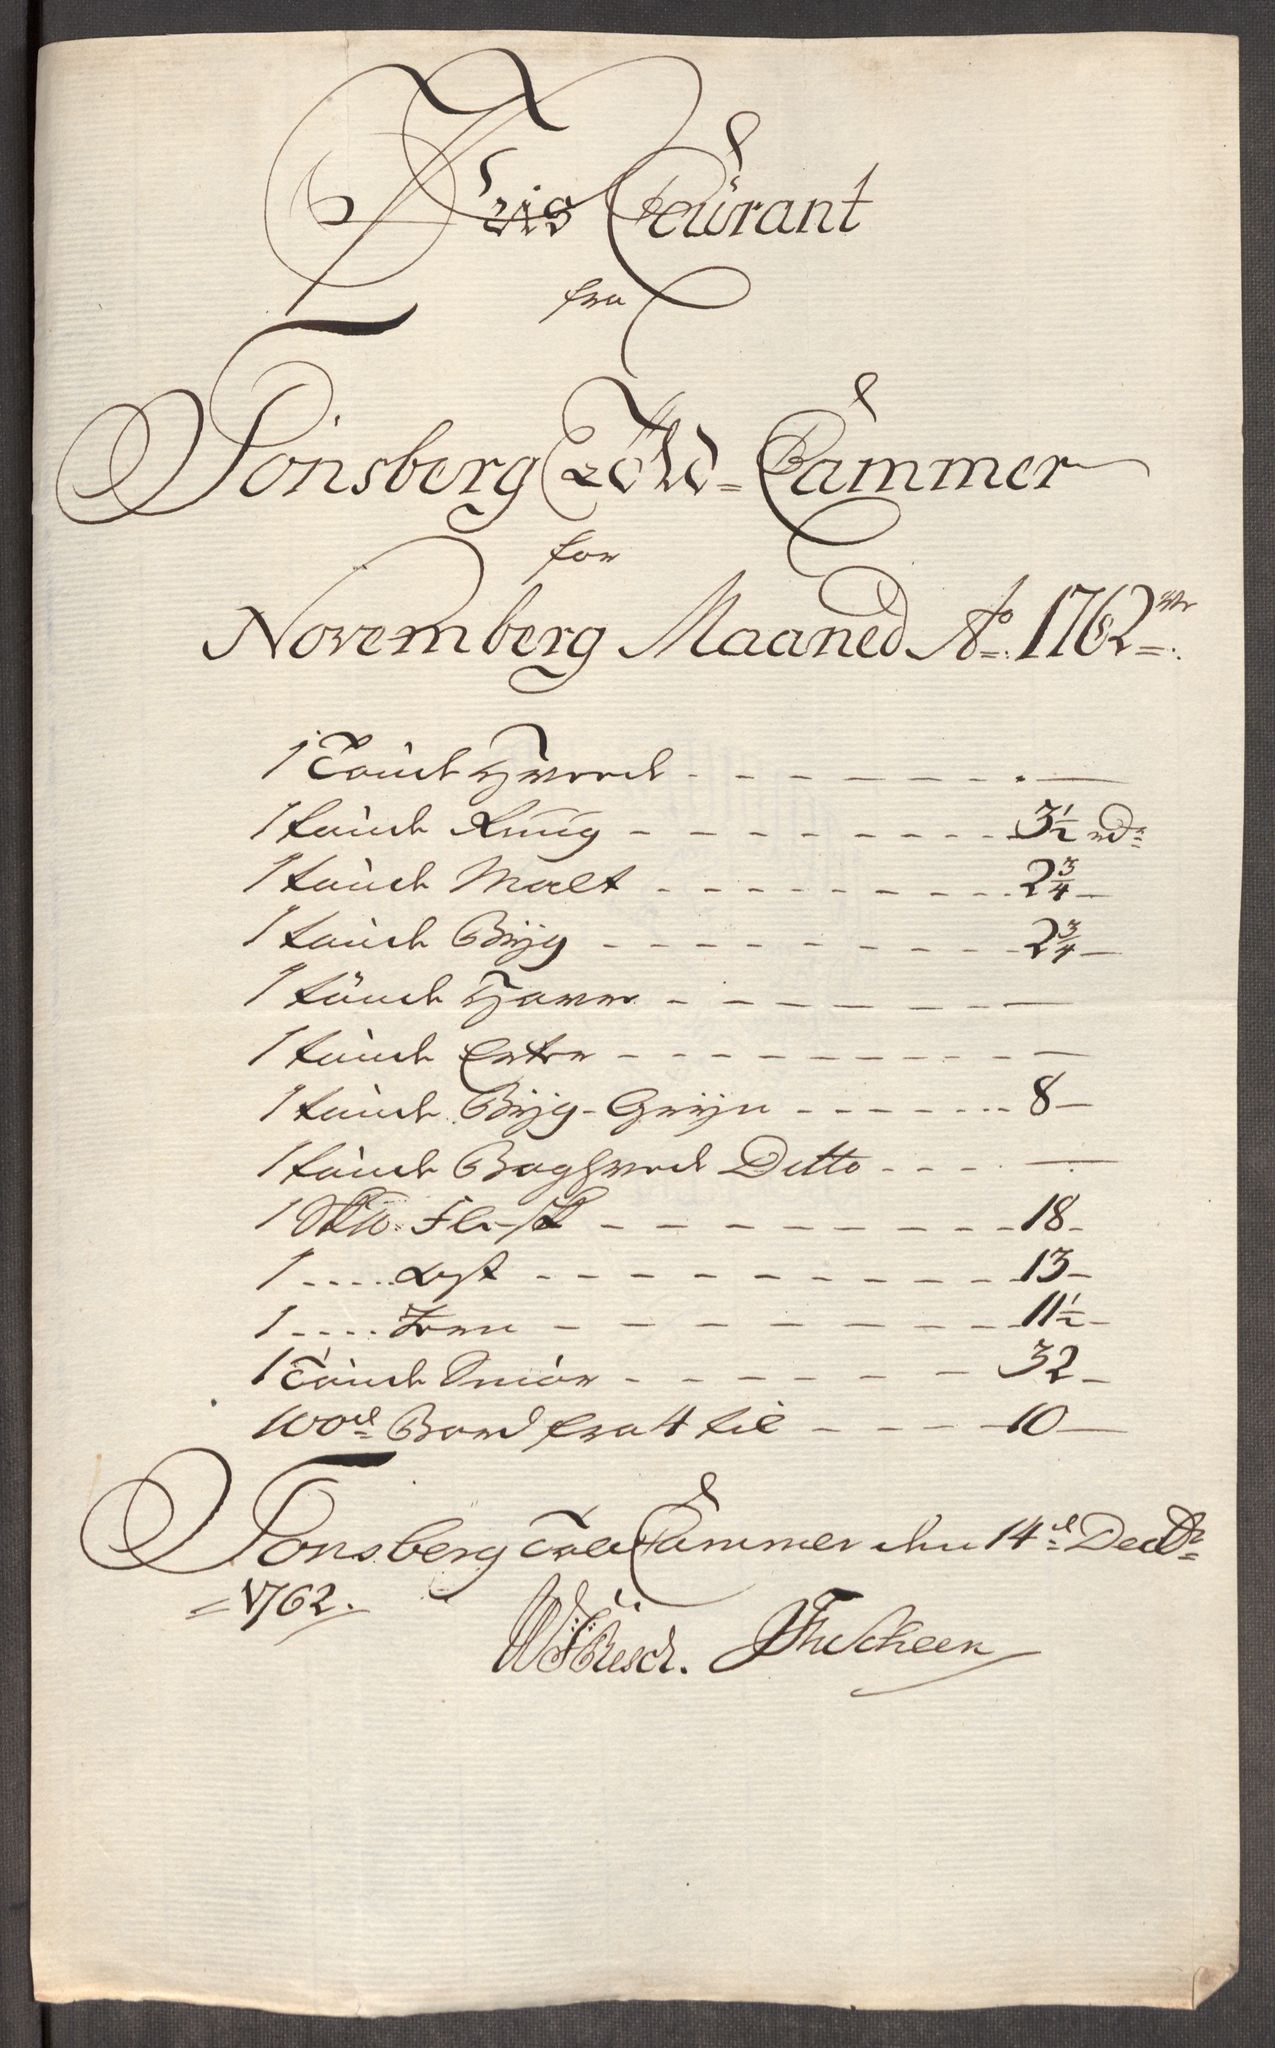 Pris Courant
fra
Tönsberg Told=Cammer
for
Novemberg Maaned Ao. 1762
1 Tönde Hvede - - - - - - - . —
1 tönde Rúúg - - - - - - - - 3½ rd
1 tönde Malt - - - - - - - - 2¾ —
1 tönde Bÿg - - - - - - - - 2¾ —
1 tönde Havre - - - - - - - —
1 tönde Erter - - - - - - - —
1 tönde Bÿg-Grÿn - - - - - - - 8 —
1 tönde Boghvede Ditto - - - - —
1 Sk℔. Flesk - - - - - - - - 18 —
1 ..... Ost - - - - - - - - - 13 —
1 ..... Jern - - - - - - - - 11½ —
1 Tönde Smör - - - - - - - 32 —
100de Bord fra 4 til - - - - 10 —
Tönsberg Told Cammer den 14de Decbr
= 1762.